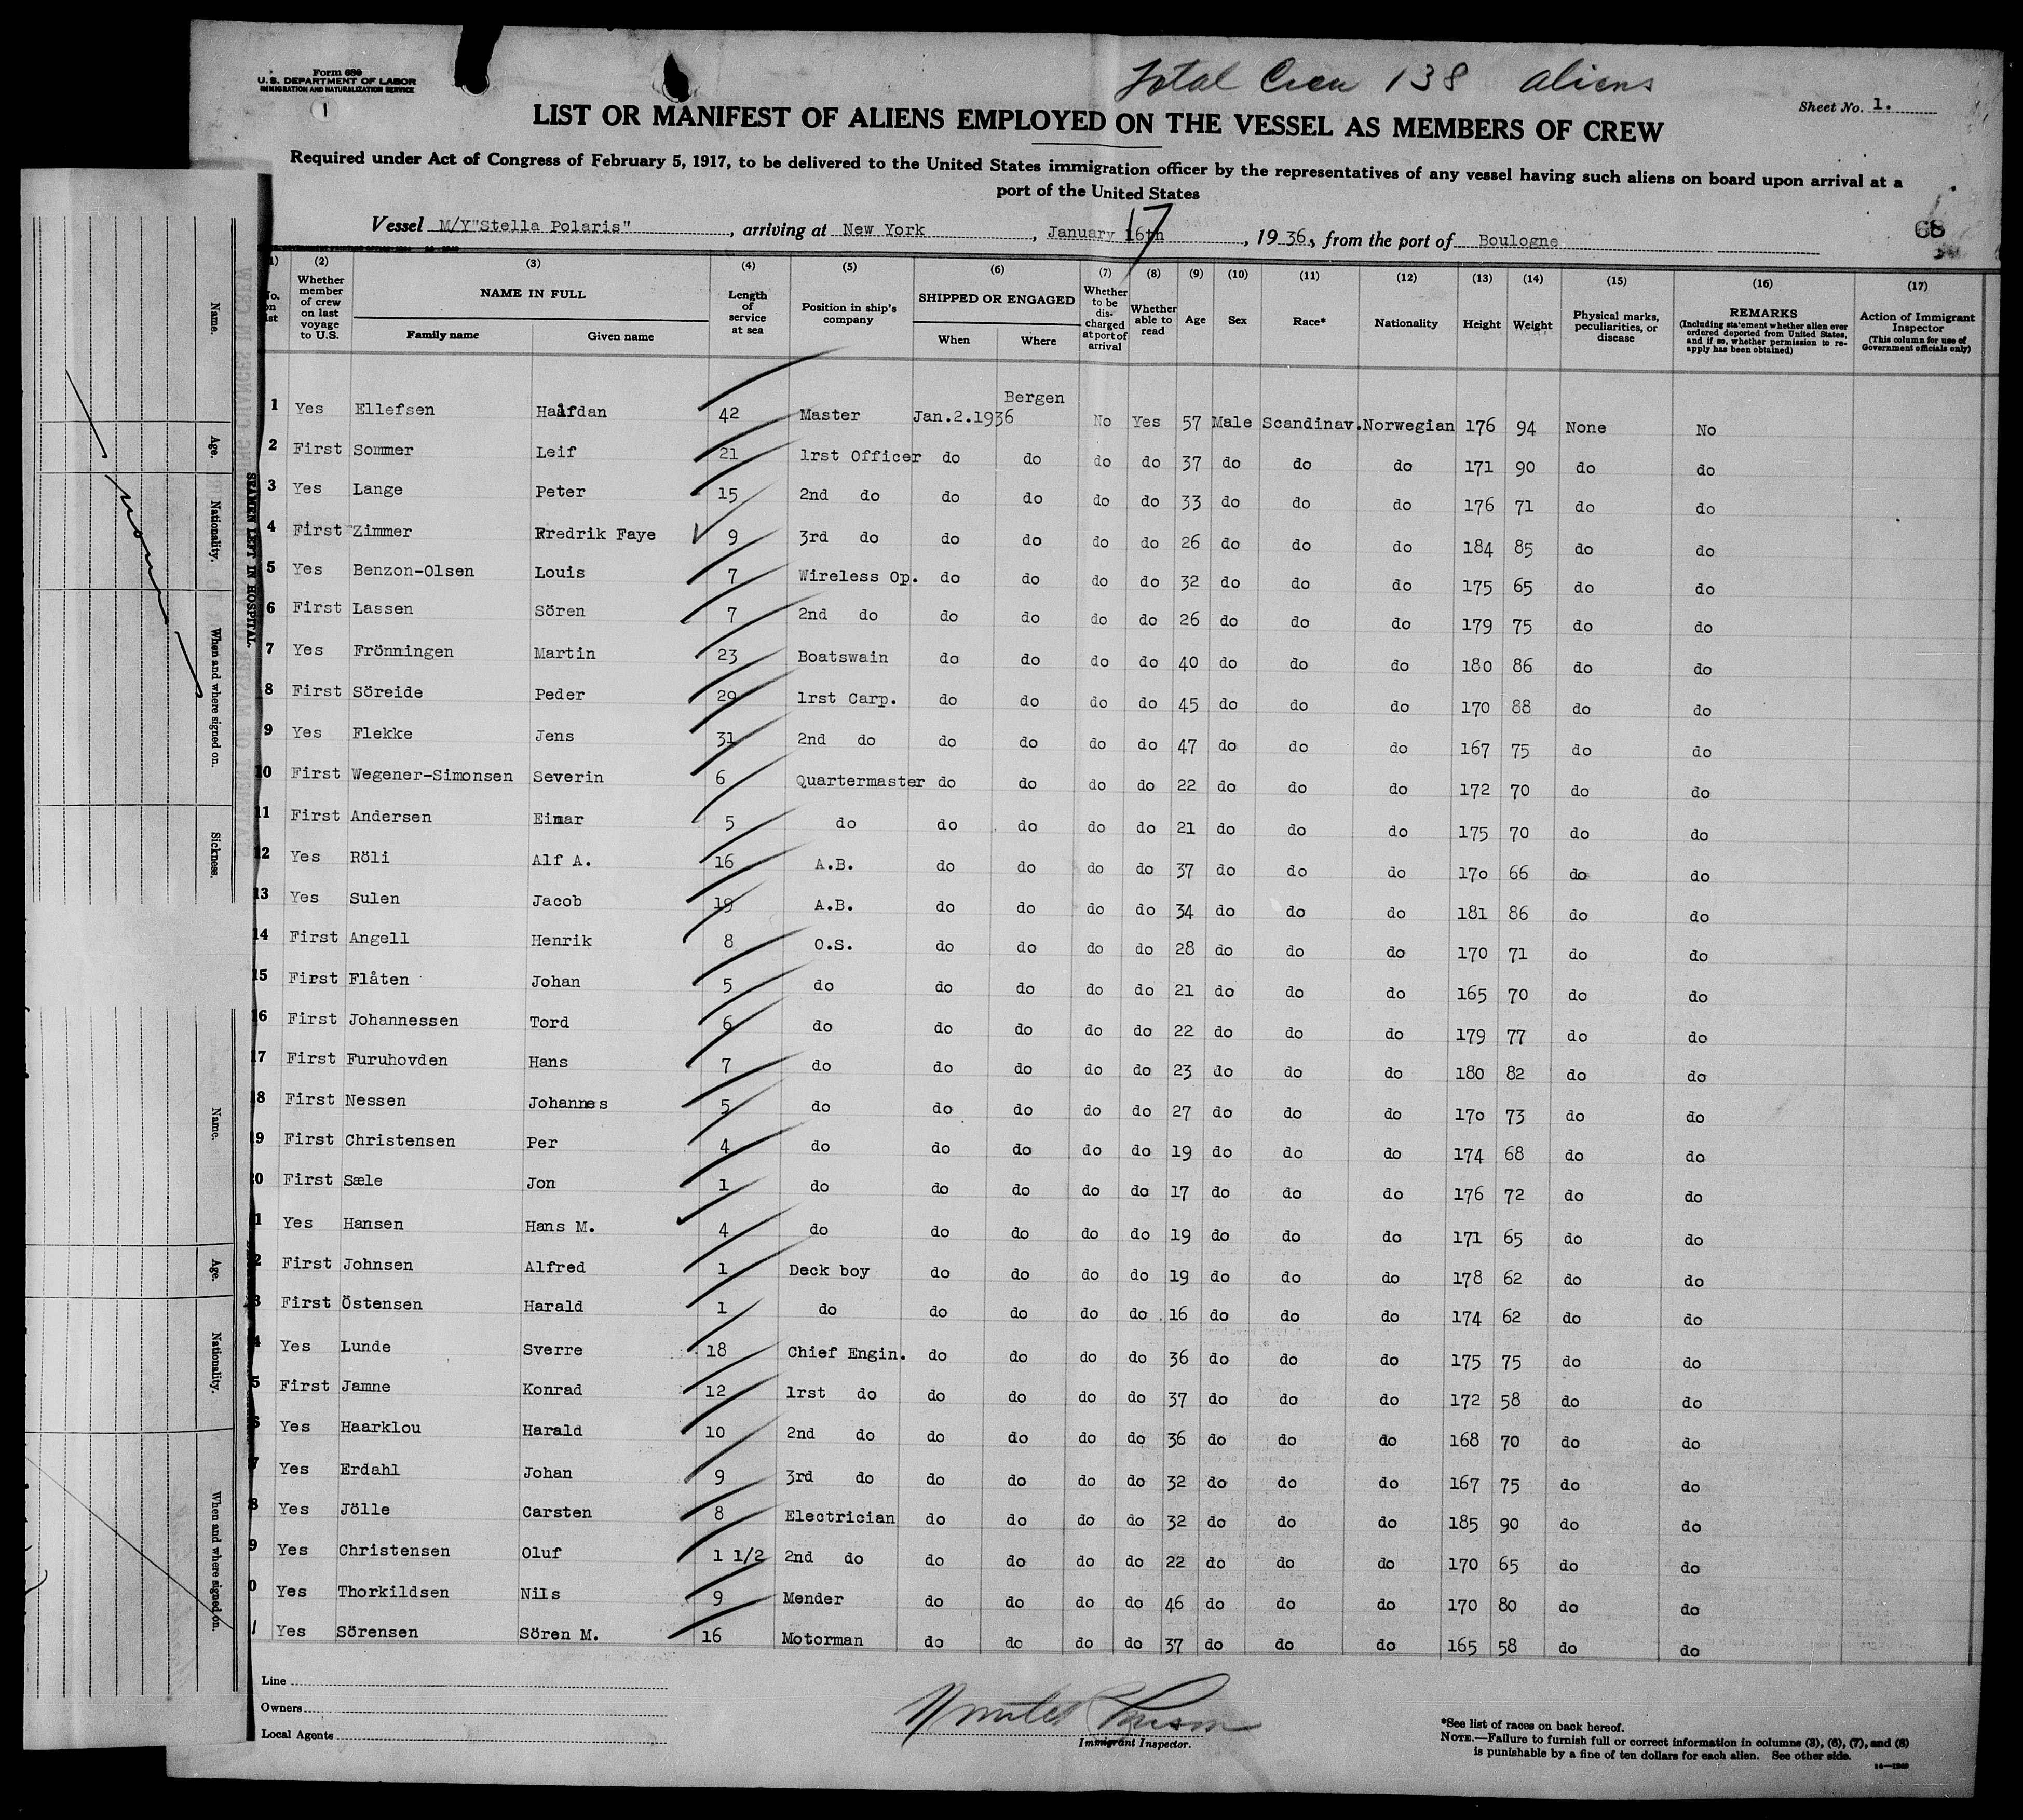 Form 689
U.S. DEPARTMENT OF LABOR
IMMIGRATION AND NATURALIZATION SERVICE
1
Total Crew 138 aliens
Sheet No. 1.
LIST OR MANIFEST OF ALIENS EMPLOYED ON THE VESSEL AS MEMBERS OF CREW
Required under Act of Congress of February 5, 1917, to be delivered to the United States immigration officer by the representatives of any vessel having such aliens on board upon arrival at a
port of the United States
Vessel M/Y"Stella Polaris", arriving at New York, January 16th 17, 1936, from the port of Boulogne
68
(2) (3) (4) (5) (6) (7) (8) (9) (10) (11) (12) (13) (14) (15) (16) (17)
No. on list Whether member of crew on last voyage to U.S. NAME IN FULL Family name Given name Length of service at sea Position in ship's company SHIPPED OR ENGAGED When Where Whether to be discharged at port of arrival Whether able to read Age Sex Race* Nationality Height Weight Physical marks, peculiarities, or disease REMARKS (Including statement whether alien ever ordered deported from United States, and if so, whether permission to reapply has been obtained) Action of Immigrant Inspector (This column for use of Government officials only)
1 Yes Ellefsen Halfdan 42 Master Jan.2.1936 Bergen No Yes 57 Male Scandinav. Norwegian 176 94 None No
2 First Sommer Leif 21 1rst Officer do do do do 37 do do do 171 90 do do
3 Yes Lange Peter 15 2nd do do do do do 33 do do do 176 71 do do
4 First Zimmer Fredrik Faye 9 3rd do do do do do 26 do do do 184 85 do do
5 Yes Benzon-Olsen Louis 7 Wireless Op. do do do do 32 do do do 175 65 do do
6 First Lassen Sören 7 2nd do do do do do 26 do do do 179 75 do do
7 Yes Frönningen Martin 23 Boatswain do do do do 40 do do do 180 86 do do
8 First Söreide Peder 29 1rst Carp. do do do do 45 do do do 170 88 do do
9 Yes Flekke Jens 31 2nd do do do do do 47 do do do 167 75 do do
10 First Wegener-Simonsen Severin 6 Quartermaster do do do do 22 do do do 172 70 do do
11 First Andersen Einar 5 do do do do do 21 do do do 175 70 do do
12 Yes Röli Alf A. 16 A.B. do do do do 37 do do do 170 66 do do
13 Yes Sulen Jacob 19 A.B. do do do do 34 do do do 181 86 do do
14 First Angell Henrik 8 O.S. do do do do 28 do do do 170 71 do do
15 First Flåten Johan 5 do do do do do 21 do do do 165 70 do do
16 First Johannessen Tord 6 do do do do do 22 do do do 179 77 do do
17 First Furuhovden Hans 7 do do do do do 23 do do do 180 82 do do
18 First Nessen Johannes 5 do do do do do 27 do do do 170 73 do do
19 First Christensen Per 4 do do do do do 19 do do do 174 68 do do
20 First Sæle Jon 1 do do do do do 17 do do do 176 72 do do
1 Yes Hansen Hans M. 4 do do do do do 19 do do do 171 65 do do
2 First Johnsen Alfred 1 Deck boy do do do do 19 do do do 178 62 do do
3 First Östensen Harald 1 do do do do do 16 do do do 174 62 do do
4 Yes Lunde Sverre 18 Chief Engin. do do do do 36 do do do 175 75 do do
5 First Jamne Konrad 12 1rst do do do do do 37 do do do 172 58 do do
6 Yes Haarklou Harald 10 2nd do do do do do 36 do do do 168 70 do do
7 Yes Erdahl Johan 9 3rd do do do do do 32 do do do 167 75 do do
8 Yes Jölle Carsten 8 Electrician do do do do 32 do do do 185 90 do do
9 Yes Christensen Oluf 1 1/2 2nd do do do do do 22 do do do 170 65 do do
0 Yes Thorkildsen Nils 9 Mender do do do do 46 do do do 170 80 do do
1 Yes Sörensen Sören M. 16 Motorman do do do do 37 do do do 165 58 do do
Line
Owners
Local Agents
Immigrant Inspector.
*See list of races on back hereof.
NOTE.—Failure to furnish full or correct information in columns (3), (6), (7), and (8)
is punishable by a fine of ten dollars for each alien. See other side.
SEAMEN LEFT IN HOSPITAL.
Name. Age. Nationality. When and where signed on. Sickness.
none
Name. Age. Nationality. When and where signed on.